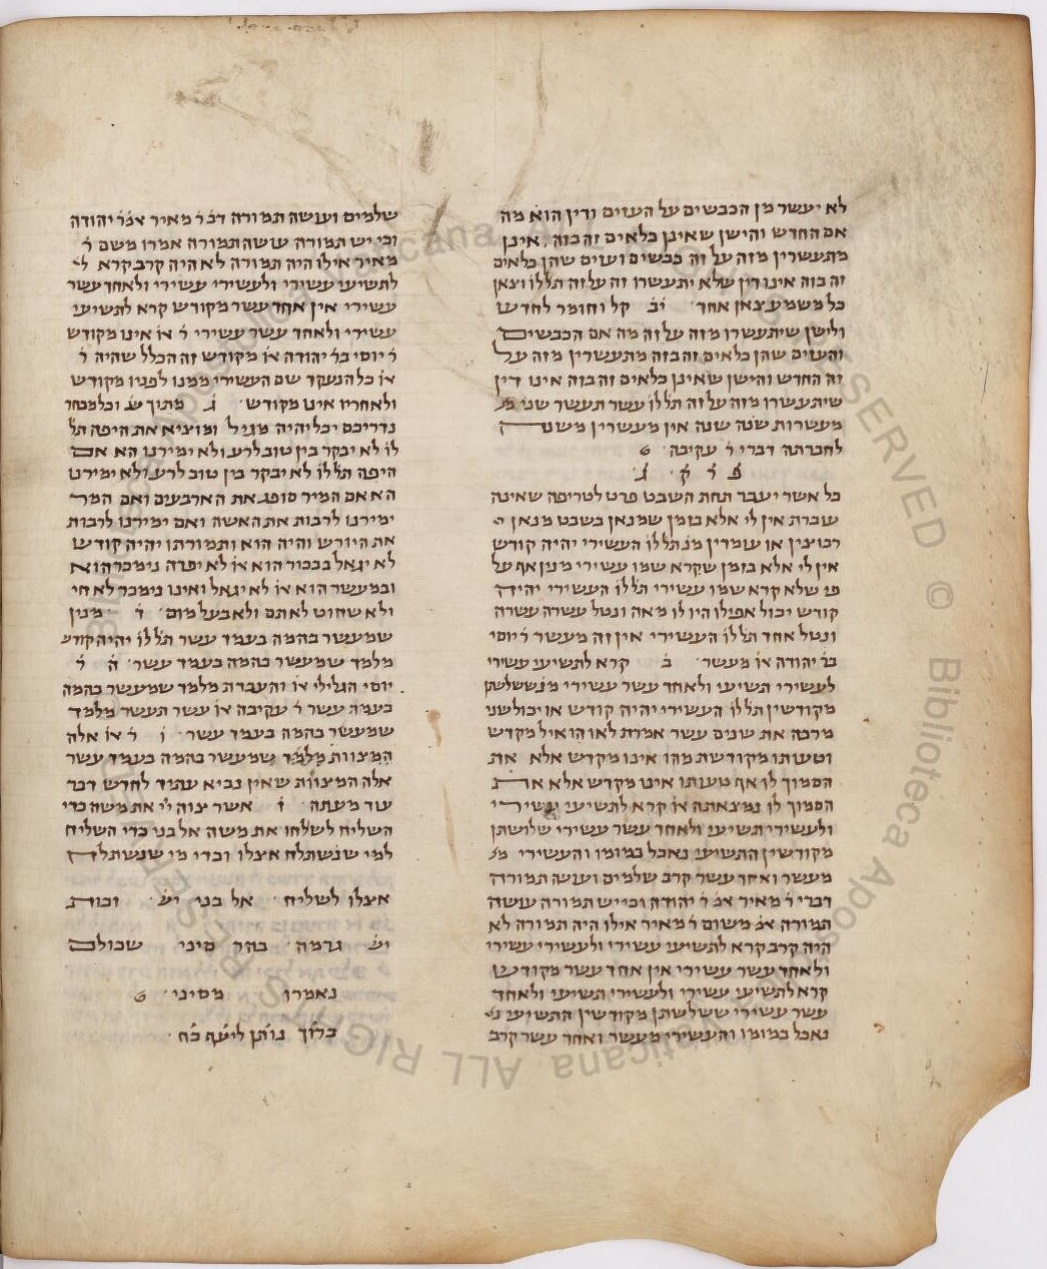 לא יעשר מן הכבשים על העזים ודין הוא מה
אם החדש והישן שאינן כלאים זה בזה אינן
מתעשרין מזה על זה כבשים ועזים שהן כלאים
זה בזה אינו דין שלא יתעשרו זה על זה תל׳ לו׳ וצאן
כל משמע צאן אחד יב קל וחומר לחדש
ולישן שיתעשרו מזה על זה מה אם הכבשים
והעזים שהן כלאים זה בזה מתעשרין מזה על
זה החדש והישן שאינן כלאים זה בזה אינו דין
שיתעשרו מזה על זה תל׳ לו׳ עשר תעשר שני מ׳
מעשרות שנה שנה אין מעשרין משנה
לחברתה דברי ר׳ עקיבה
פ ר ק ג
כל אשר יעבר תחת השבט פרט לטריפה שאינה
עוברת אין לי אלא בזמן שמנאן בשבט מנאן
רבוצין או עומדין מנ׳ תל׳ לו׳ העשירי יהיה קודש
אין לי אלא בזמן שקרא שמו עשירי מנין אף על
פי שלא קרא שמו עשירי תל׳ לו׳ העשירי יהיה
קודש יכול אפילו היו לו מאה ונטל עשרה עשרה
ונטל אחד תל׳ לו׳ העשירי אין זה מעשר ר׳ יוסי
בר׳ יהודה או׳ מעשר ב קרא לתשיעי עשירי
לעשירי תשיעי ולאחד עשר עשירי מנ׳ ששלשתן
מקודשין תל׳ לו׳ העשירי יהיה קודש או יכול שני
מרבה את שנים עשר אמרת לאו הואיל מקדש
וטעותו מקודשת מהו אינו מקדש אלא את
הסמוך לו אף טעותו אינו מקדש אלא את
הסמוך לו נמצאתה או׳ קרא לתשיעי עשירי
ולעשירי תשיעי ולאחד עשר עשירי שלושתן
מקודשין התשיעי נאכל במומו והעשירי מ׳
מעשר ואחד עשר קרב שלמים ועושה תמורה
דברי ר׳ מאיר אמ׳ ר׳ יהודה וכי יש תמורה עושה
תמורה אמ׳ משום ר׳ מאיר אילו היה תמורה לא
היה קרב קרא לתשיעי עשירי ולעשירי עשירי
ולאחד עשר עשירי אין אחד עשר מקודש
קרא לתשיעי עשירי ולעשירי תשיעי ולאחד
עשר עשירי ששלשתן מקודשין התשיעי
נאכל במומו והעשירי מעשר ואחד עשר קרב
שלמים ועושה תמורה דבר׳ ר׳ מאיר אמ׳ ר׳ יהודה
וכי יש תמורה עושה תמורה אמרו משם ר׳
מאיר אילו היה תמורה לא היה קרב קרא ל׳
לתשיעי עשירי ולעשירי עשירי ולאחד עשר
עשירי אין אחד עשר מקודש קרא לתשיעי
עשירי ולאחד עשר עשירי ר׳ או׳ אינו מקודש
ר׳ יוסי בר׳ יהודה או׳ מקודש זה הכלל שהיה ר׳
או׳ כל הנעקד שם העשירי ממנו לפניו מקודש
ולאחריו אינו מקודש ג מתוך ש׳ וכל מבחר
נדריכם יכל יהיה מגיל ומוציא את היפה תל׳
לו׳ לא יבקר בין טוב לרע ולא ימירנו הא אם
היפה תל׳ לו׳ לא יבקר בין טוב לרע ולא ימירנו
הא אם המיר סופג את הארבעים ואם המר
ימירנו לרבות את האשה ואם ימירנו לרבות
את היורש והיה הוא ותמורתו יהיה קודש
לא יגאל בבכור הוא או׳ לא יפדה נימכר הוא
ובמעשר הוא או׳ לא יגאל ואינו נימכר לא חי
ולא שחוט לא תם ולא בעל מום ד מנין
שמעשר בהמה בעמד עשר תל׳ לו׳ יהיה קודש
מלמד שמעשר בהמה בעמד עשר ה ר׳
יוסי הגלילי או׳ והעברת מלמד שמעשר בהמה
בעמד עשר ר׳ עקיבה או׳ עשר תעשר מלמד
שמעשר בהמה בעמד עשר ו ר׳ או׳ אלה
המצוות מלמד שמעשר בהמה בעמד עשר
אלה המצוות שאין נביא עתיד לחדש דבר
עוד מעתה ז אשר צוה יי׳ את משה כדי
השליח לשלחו את משה אל בני כדי השליח
למי שנשתלח אצלו וכדו מי שנשתלח
אצלו לשליח אל בני יש׳ זכות
יש׳ גרמה בהר סיני שכולם
נאמרו מסיני
ברוך נותן ליעף כח